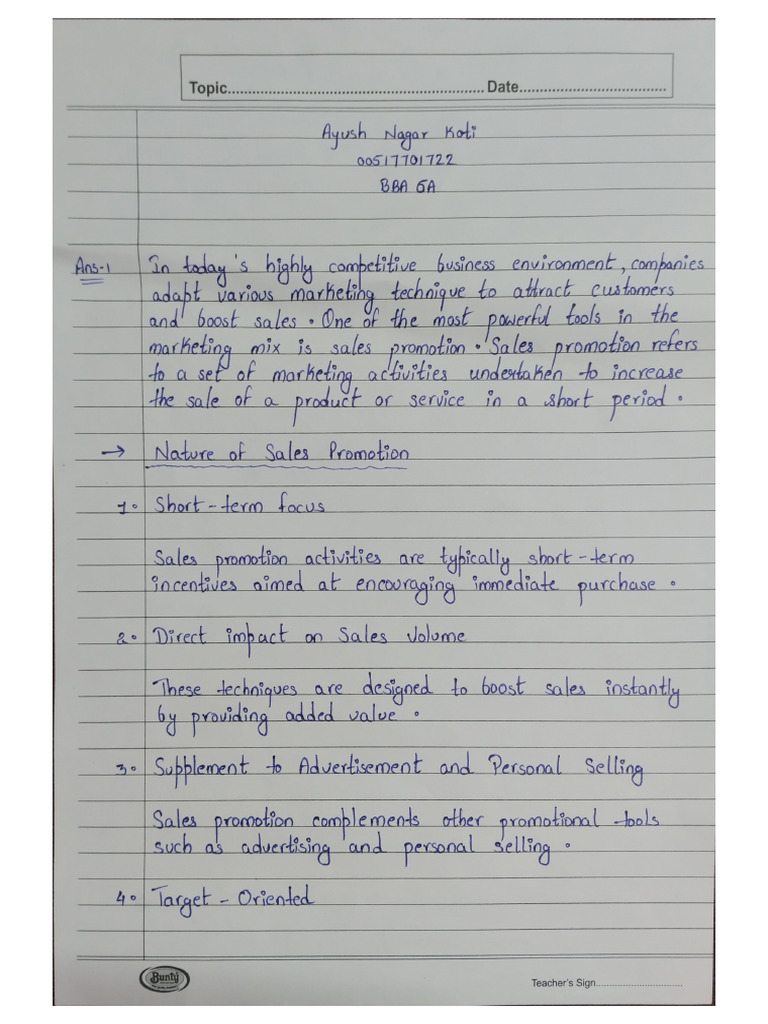 Topic................................................................ Date....................................
Ayush Nagar Koti
00517701722
BBA 6A
Ans-1 In today's highly competitive business environment, companies
adapt various marketing technique to attract customers
and boost sales. One of the most powerful tools in the
marketing mix is sales promotion. Sales promotion refers
to a set of marketing activities undertaken to increase
the sale of a product or service in a short period.
→ Nature of Sales Promotion
1. Short-term focus
Sales promotion activities are typically short-term
incentives aimed at encouraging immediate purchase.
2. Direct impact on Sales Volume
These techniques are designed to boost sales instantly
by providing added value.
3. Supplement to Advertisement and Personal Selling
Sales promotion complements other promotional tools
such as advertising and personal selling.
4. Target-Oriented
Bunty
Teacher's Sign................................